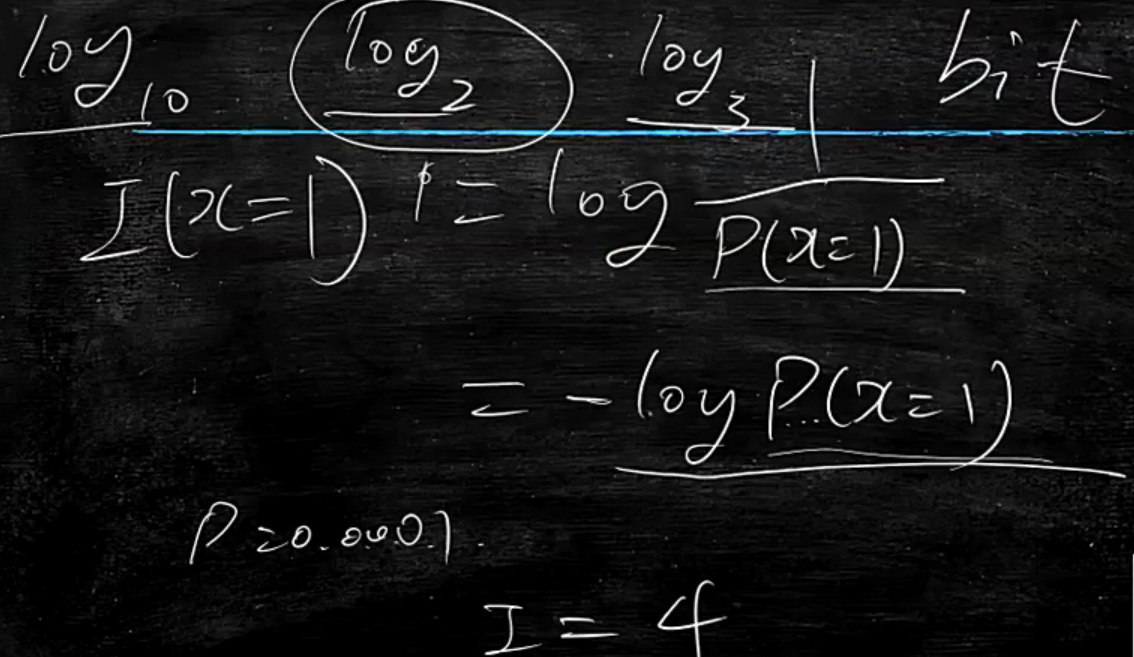 log₁₀ log₂ log₃ bit
I(x=1) = log 1/P(x=1)
= -log P(x=1)
P=0.0001.
I = 4